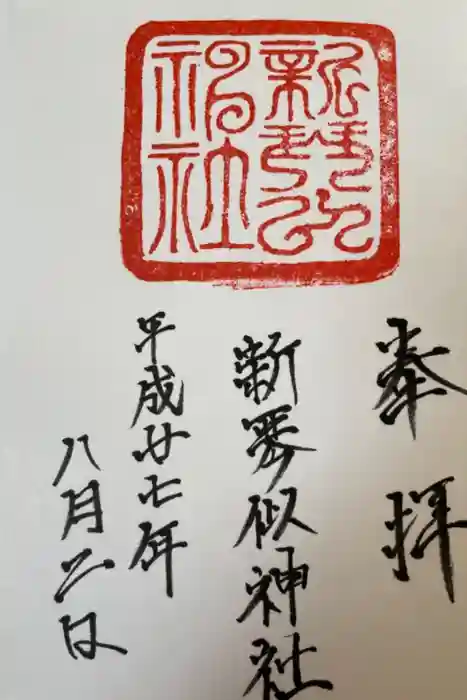 奉拝
新琴似神社
平成廿七年
八月二日
新琴似
神社